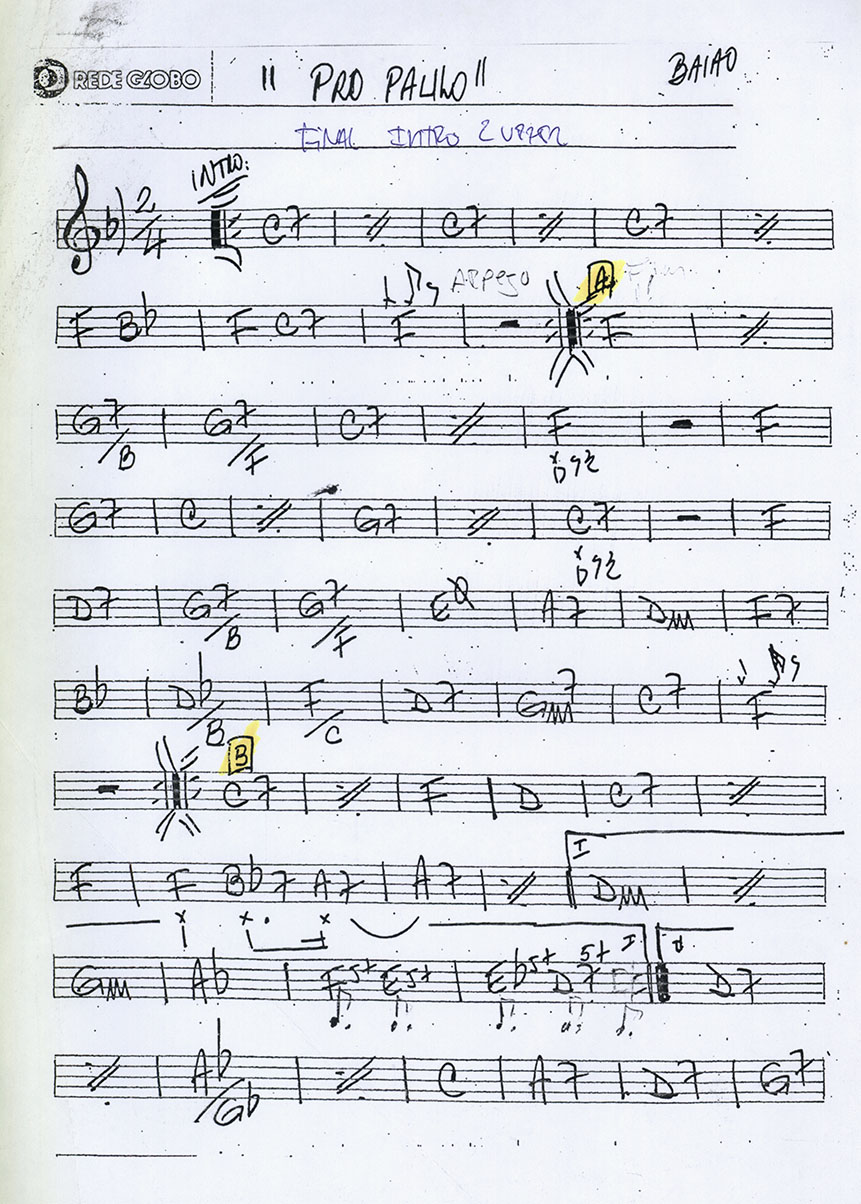 REDE GLOBO " PRO PAULO " BAIAO
FINAL INTRO 2 VEZES
INTRO:
2/4 C7 | ٪ | C7 | ٪ | C7 | ٪
ARPEJO A
F Bb | F C7 | F | - F | ٪
G7/B | G7/F | C7 | ٪ | F | - | F
G7 | C | ٪ | G7 | ٪ | C7 | - | F
D7 | G7/B | G7/F | EØ | A7 | Dm | F7
Bb | Db/B | F/C | D7 | Gm7 | C7 | F
B
- C7 | ٪ | F | D | C7 | ٪
I
F | F Bb7 A7 | A7 | ٪ | Dm | ٪
Gm | Ab | F5+ E5+ | Eb5+ D7 5+ D7
٪ | Ab/Gb | ٪ | C | A7 | D7 | G7